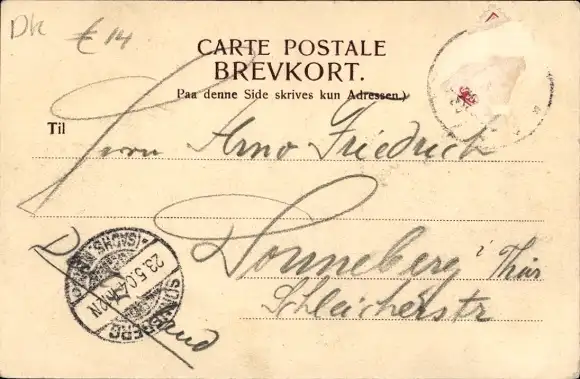 Dk € 14
CARTE POSTALE
BREVKORT.
Paa denne Side skrives kun Adressen.)
Til Herrn Arno Friedrich
Sonneberg i Thür
Schleicherstr
SONNEBERG
23.5.04